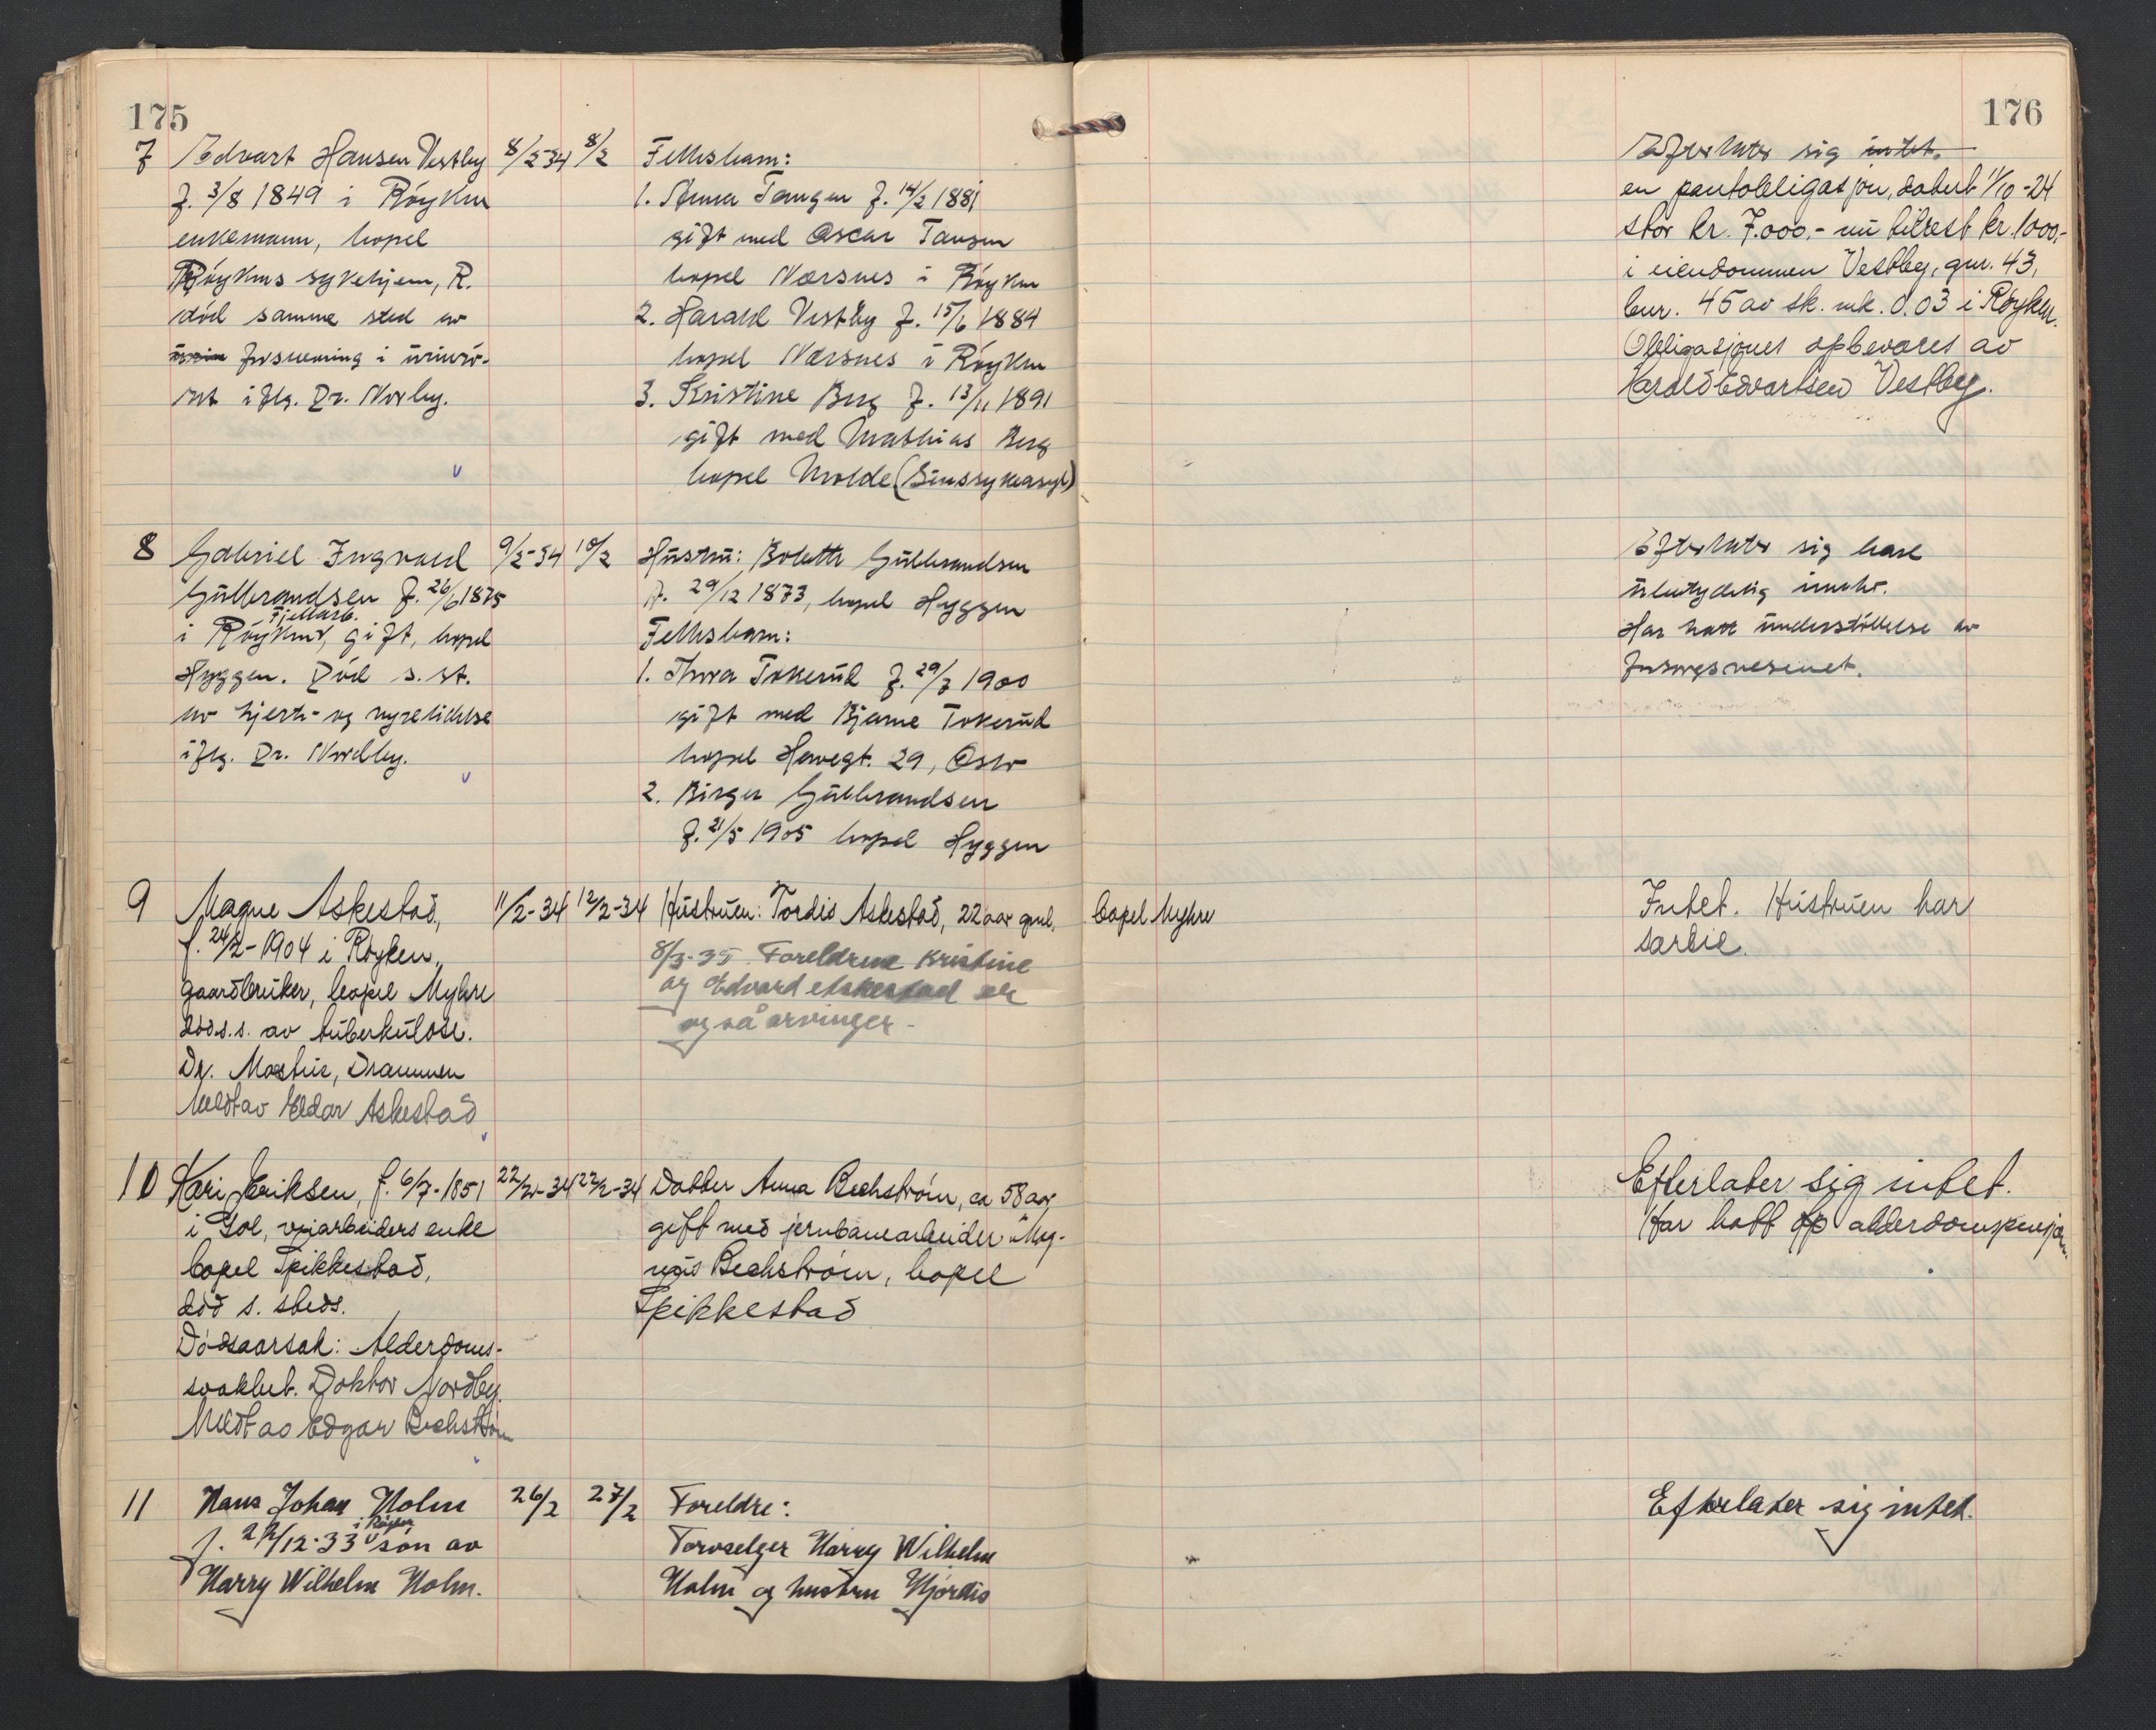 175
176
7 Edvart Hansen Vestby 8/2-34 8/2
f. 3/8 1849 i Röyken
enkemann, bopel
Röykens sykehjem, R.
död samme sted av
forsnevring i urinrö-
ret iflg. Dr. Norby.
Fellesbarn:
1. Anna Tangen f. 14/2 1881
gift med Oscar Tangen
bopel Nærsnes i Röyken
2. Harald Vestby f. 15/6 1884
bopel Nærsnes i Röyken
3. Kristine Berg f. 13/11 1891
gift med Mathias Berg
bopel Molde (Sinssykeasyl)
Efterlater sig intet.
en pantobligasjon, datert 1/10-24
stor kr. 7.000.- nu tilrest kr. 1000.-
i eiendommen Vestby, gnr. 43,
bnr. 45 av sk. mk. 0.03 i Röyken.
Obligasjonen opbevares av
Harald Edvartsen Vestby.
8 Gabriel Ingvald 9/2-34 10/2
Gulbrandsen f. 26/6 1875
Fjellarb.
i Röyken, gift, bopel
Hyggen. Död s. st.
av hjerte- og nyrelidelse
iflg. Dr. Nordby.
Hustru: Bolette Gulbrandsen
f. 29/12 1873, bopel Hyggen
Fellesbarn:
1. Thora Tokerud f. 29/7 1900
gift med Bjarne Tokerud
bopel Herregt. 29, Oslo
2. Birger Gulbrandsen
f. 21/5 1905 bopel Hyggen
Efterlater sig bare
ubetydelig innbo.
Har hatt understöttelse av
forsorgsvesenet.
9 Magne Askestad, 11/2-34 12/2-34 Hustruen: Tordis Askestad, 22 aar gml. bopel Myhre
f. 24/2-1904 i Röyken,
gaardbruker, bopel Myhre
död s.s. av tuberkulose.
Dr. Mostue, Drammen
Meldt av Eldar Askestad
8/3-35. Foreldrene Kristine
og Edvard Askestad er
også arvinger.-
Intet. Hustruen har
særeie.
10 Kari Eriksen, f. 6/7-1851 22/2-34 22/2-34
i Gol, veiarbeiders enke
bopel Spikkestad,
död s. steds.
Dödsaarsak: Alderdoms-
svakhet. Doktor Nordby.
Meldt av Edgar Bechström
Datter Anna Bechström, ca 58 aar,
gift med jernbanearbeider Mag-
nus Bechström, bopel
Spikkestad
Efterlater sig intet.
Har hatt alderdomspensjon.
11 Hans Johan Holm 26/2 27/2
i Röyken
f. 27/12-33 sön av
Harry Wilhelm Holm.
Foreldre:
Torvselger Harry Wilhelm
Holm og hustru Hjördis
Efterlater sig intet.